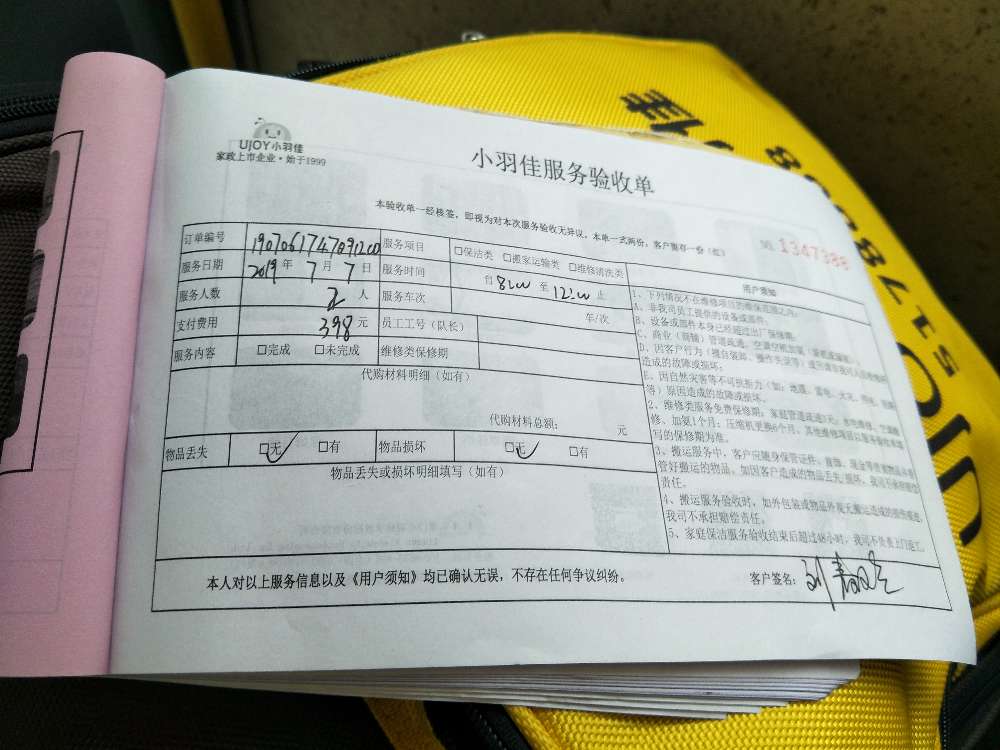 UJOY小羽佳
家政上市企业·始于1999
小羽佳服务验收单
本验收单一经核签，即视为对本次服务验收无异议，本单一式两份，客户需存一份（红）
№ 1347388
订单编号 190706174709120 服务项目 □保洁类 □搬家运输类 □维修清洗类
服务日期 2019 年 7 月 7 日 服务时间 自 8:00 至 12:00 止
服务人数 2 人 服务车次 车/次
支付费用 398 元 员工工号（队长）
服务内容 □完成 □未完成 维修类保修期
代购材料明细（如有）
代购材料总额： 元
物品丢失 □无 ✓ □有 物品损坏 □无 ✓ □有
物品丢失或损坏明细填写（如有）
用户须知
1、下列情况不在维修项目的维保范围之内：
A、非我司员工提供的设备或部件。
B、设备或部件本身已经超过出厂保修期。
C、商业（商铺）管道疏通、空调空机加氟
D、因客户行为（擅自装卸、操作不当等）或
造成的故障或损坏；
E、因自然灾害等不可抗拒力（如：地震、雷电、水灾
等）原因造成的故障或损坏。
2、维修类服务免费保修期：家庭管道疏通
修、加氟1个月；压缩机更换6个月，其他维修项目以服务验收单填
写的保修期为准。
3、搬运服务中，客户应随身保管证件、首饰、现金等贵重物品
管好搬运的物品，如因客户造成的物品丢失/损坏，我司不承担赔偿
责任。
4、搬运服务验收时，如外包装或物品外观无搬运造成的损伤痕迹，
我司不承担赔偿责任。
5、家庭保洁服务验收结束后超过48小时，我司不负责上门返工。
本人对以上服务信息以及《用户须知》均已确认无误，不存在任何争议纠纷。 客户签名：